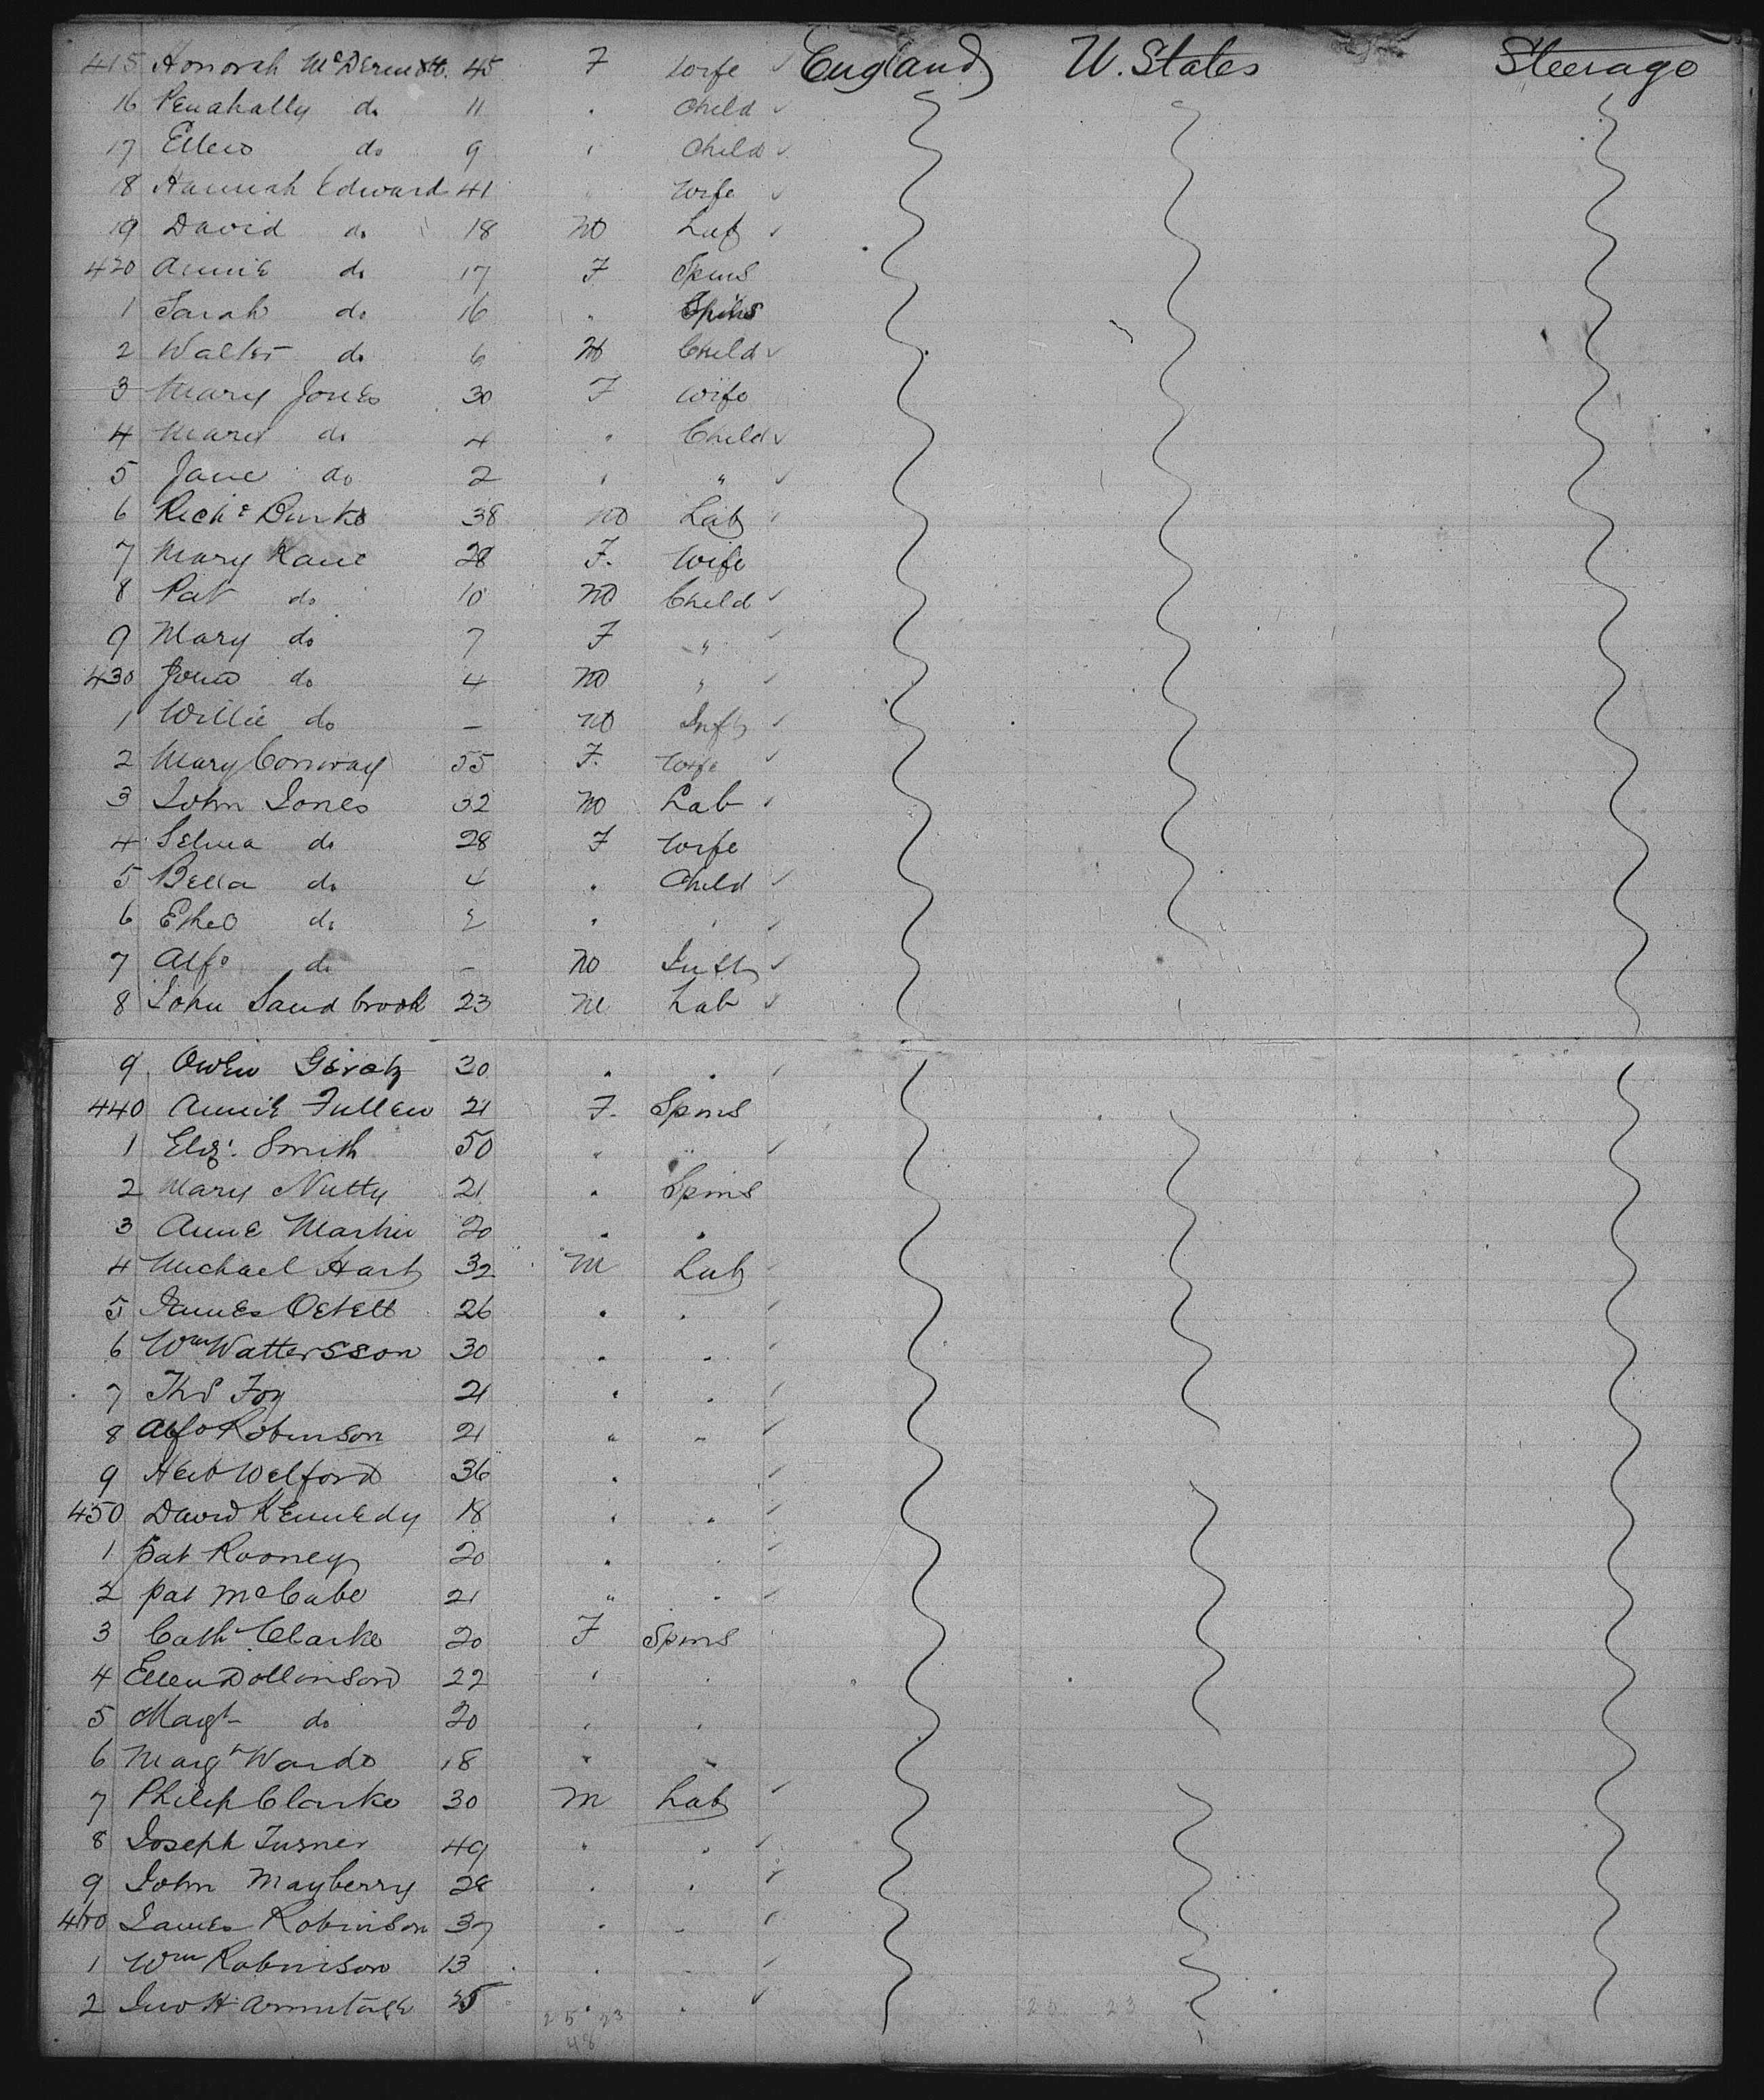 415 Honorah McDermott 45 F Wife ✓ England U. States Steerage
16 Penahally do 11 " Child ✓
17 Ellen do 9 " Child ✓
18 Hannah Edward 41 " Wife ✓
19 David do 18 M Lab ✓
420 Annie do 17 F Spins
1 Sarah do 16 " Spins
2 Walter do 6 M Child ✓
3 Mary Jones 30 F Wife
4 Mary do 4 " Child ✓
5 Jane do 2 " " ✓
6 Richd Burke 38 M Lab ✓
7 Mary Kane 28 F. Wife
8 Pat do 10 M Child ✓
9 Mary do 7 F " ✓
430 John do 4 M " ✓
1 Willie do – M Inft ✓
2 Mary Conway 55 F. Wife ✓
3 John Jones 32 M Lab ✓
4 Selina do 28 F Wife
5 Bella do 4 " Child ✓
6 Ethel do 2 " " ✓
7 Alfd do – M Inft ✓
8 John Sandbrook 23 M Lab ✓
9 Owen 30 " " ✓
440 Annie Fullen 21 F. Spins
1 Eliz: Smith 50 " " ✓
2 Mary Nutty 21 " Spins
3 Annie Martin 20 " "
4 Michael Hart 32 M Lab ✓
5 James 26 " " ✓
6 Wm Wattersson 30 " " ✓
7 Thos Foy 21 " " ✓
8 Alfd Robinson 21 " " ✓
9 Herb Welford 36 " ✓
450 David Kennedy 18 " " ✓
1 Pat Rooney 20 " " ✓
2 Pat McCabe 21 " " ✓
3 Cath Clarke 20 F Spins
4 Ellen Dollinson 22 " "
5 Magt do 20 " "
6 Margt Warde 18 " "
7 Philip Clarke 30 M Lab ✓
8 Joseph Turner 49 " " ✓
9 John Mayberry 28 " " ✓
460 James Robinson 37 " " ✓
1 Wm Robinson 13 " " ✓
2 Jno H Armitage 25 " " ✓
25 23 25 23
48